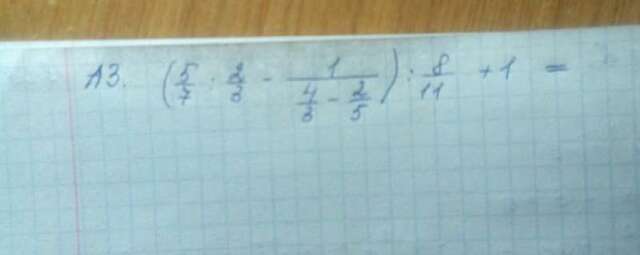 А3. (5/7 : 2/3 - 1/(4/3 - 2/5)) : 8/11 + 1 =